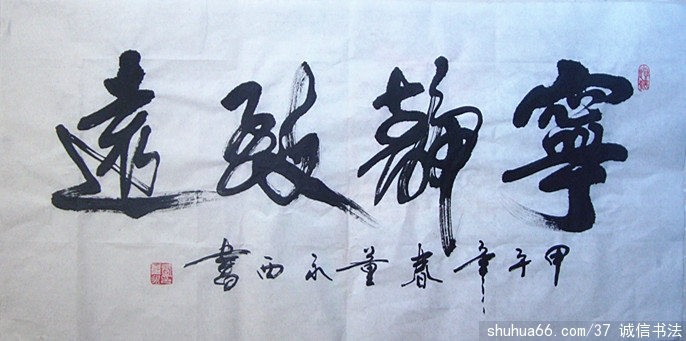 寧靜致遠
甲午年春董永西書
shuhua66.com/37 诚信书法